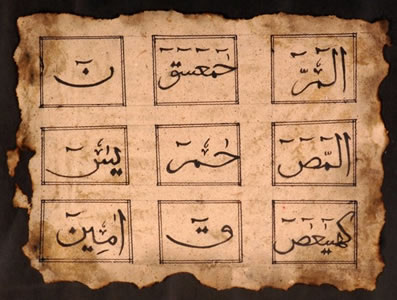 الٓمّٓرٰ حٰمٓعٓسٓقٓ نٓ
الٓمّٓصٓ حٰمٓ يٰسٓ
كٓهٰيٰعٓصٓ قٓ اٰمِيْن